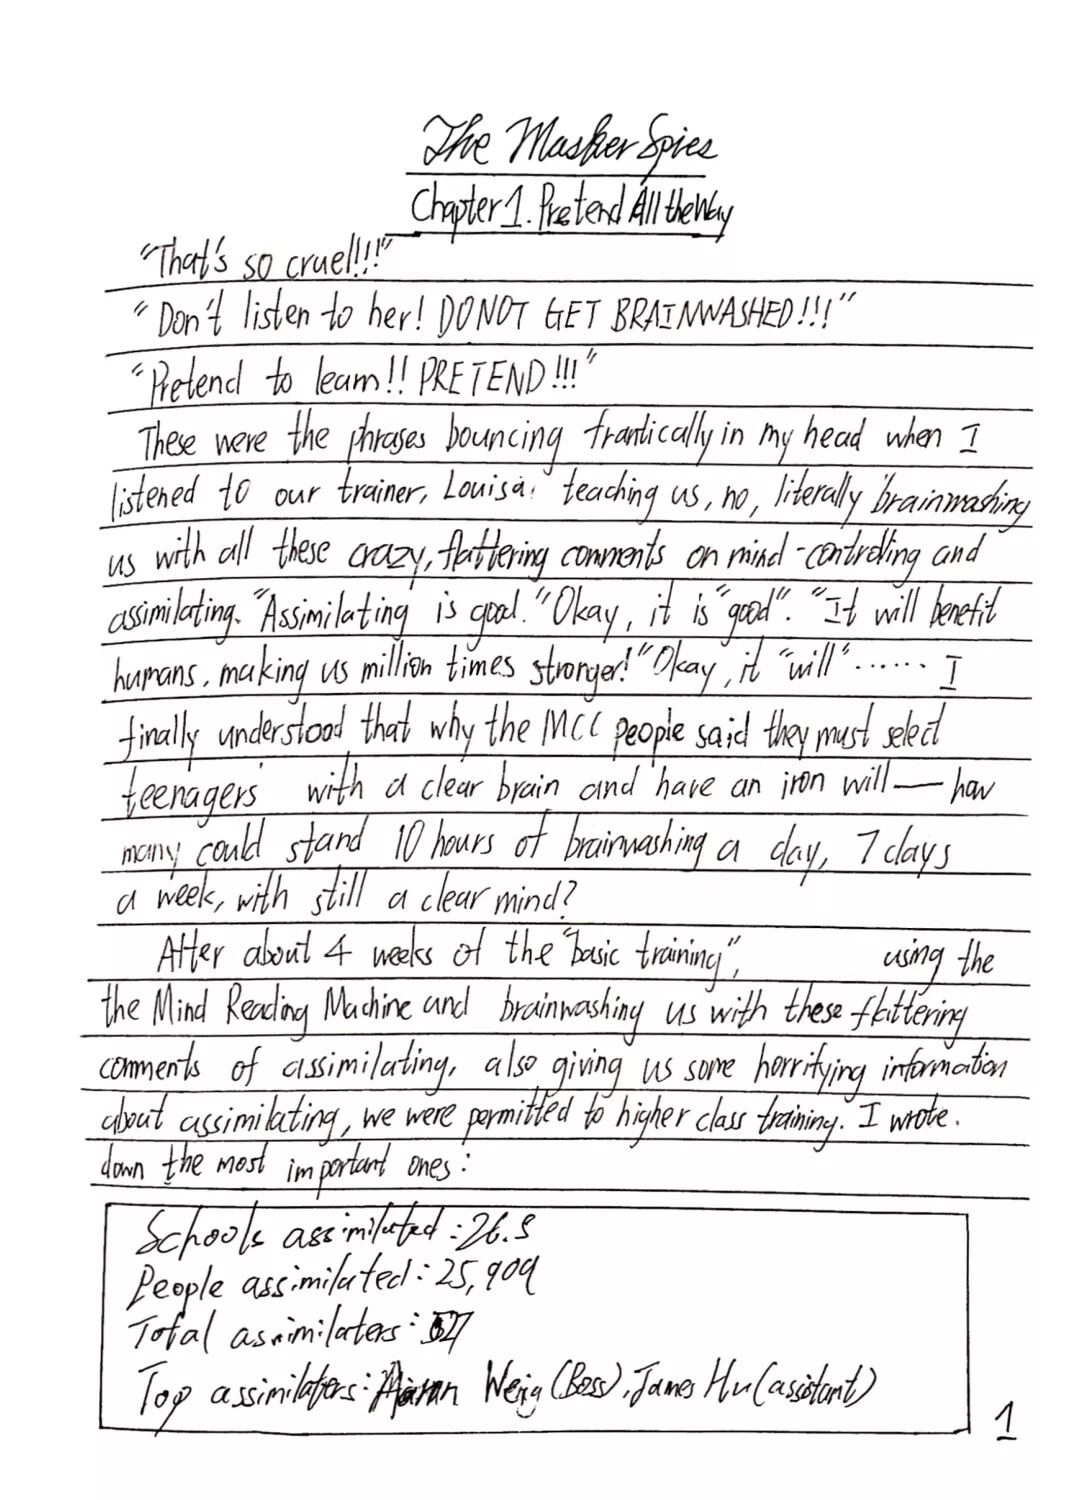 The Masker Spies
Chapter 1. Pretend All the Way
"That's so cruel!!!"
"Don't listen to her! DO NOT GET BRAINWASHED!!!"
"Pretend to learn!! PRETEND!!!"
These were the phrases bouncing frantically in my head when I
listened to our trainer, Louisa, teaching us, no, literally brainwashing
us with all these crazy, flattering comments on mind-controlling and
assimilating. "Assimilating is good." Okay, it is "good". "It will benefit
humans, making us million times stronger!" Okay, it "will" ...... I
finally understood that why the MCC people said they must select
teenagers with a clear brain and have an iron will — how
many could stand 10 hours of brainwashing a day, 7 days
a week, with still a clear mind?
After about 4 weeks of the "basic training", using the
the Mind Reading Machine and brainwashing us with these flattering
comments of assimilating, also giving us some horrifying information
about assimilating, we were permitted to higher class training. I wrote.
down the most important ones:
Schools assimilated: 26.5
People assimilated: 25,909
Total assimilaters: 527
Top assimilaters: Weng (Boss), James Hu (assistant)
1